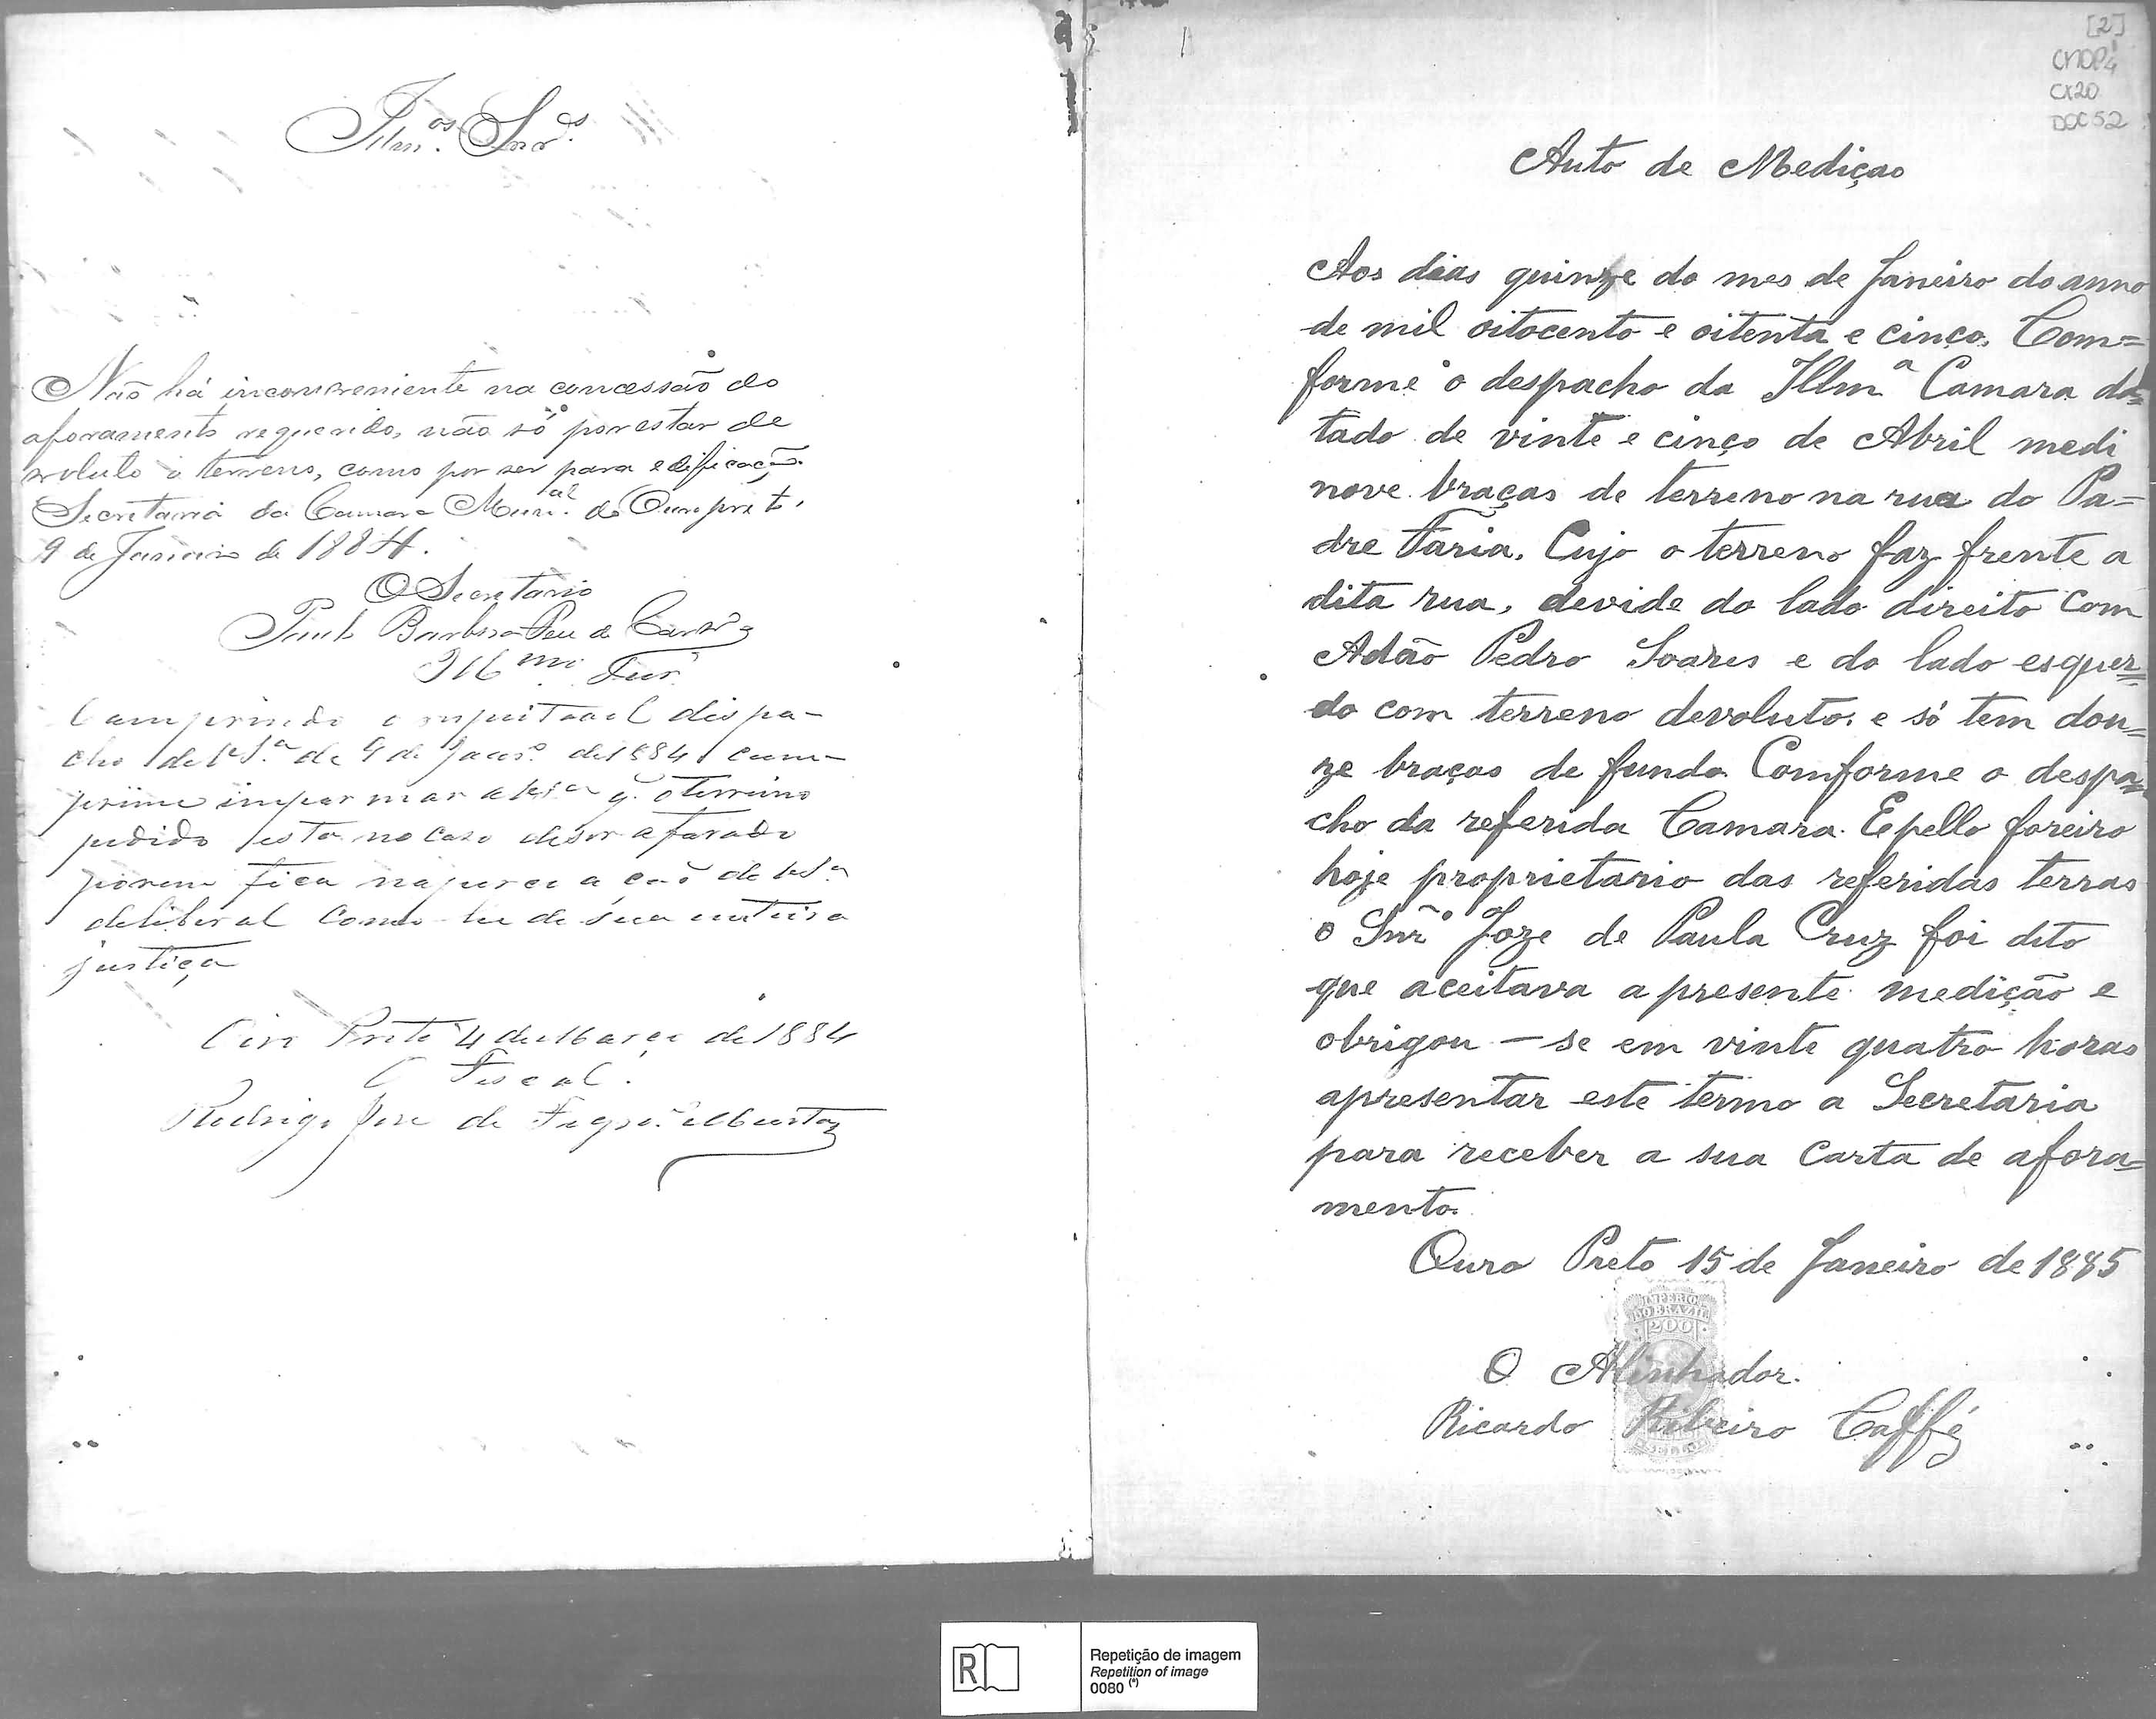 Illm.os Snr.es
Não há inconveniente na concessão do
aforamento requerido, não só por estar de
voluto o terreno, como por ser para edificação.
Secretaria da Camara Mun.al do Ouro preto,
9 de Janeiro de 1884.
O Secretario
Paulo Barbosa
Cumprindo o respeitavel dispa-
cho de V.S.ª de 9 de Janr.º de 1884 cum-
prime imformar a V.S.ª q. o terreno
pedido esta no caso de ser aforado
porem fica
deliberal como
justiça
Ouro Preto 4 de Março de 1884
O Fiscal.
Rodrigo José de Figr.do
[2]
CMOP
CX20
DOC 52
Auto de Mediçao
Aos dias quinze do mes de Janeiro do anno
de mil oitocento e oitenta e cinco. Com=
forme o despacho da Illm.ª Camara da=
tado de vinte e cinco de Abril medi
nove braças de terreno na rua do Pa=
dre Faria. Cujo o terreno faz frente a
dita rua, devide do lado direito com
Adão Pedro Soares e do lado esquer=
do com terreno devoluto. e só tem dou=
ze braças de fundo Comforme o despa=
cho da referida Camara. E pello foreiro
hoje proprietario das referidas terras
o Snr.º Joze de Paula Cruz foi dito
que aceitava a presente medição e
obrigou-se em vinte quatro horas
apresentar este termo a Secretaria
para receber a sua Carta de afora=
mento.
Ouro Preto 15 de Janeiro de 1885
IMPERIO
DO BRAZIL
200
O Alinhador.
Ricardo Ribeiro Caffé
R
Repetição de imagem
Repetition of image
0080 (*)